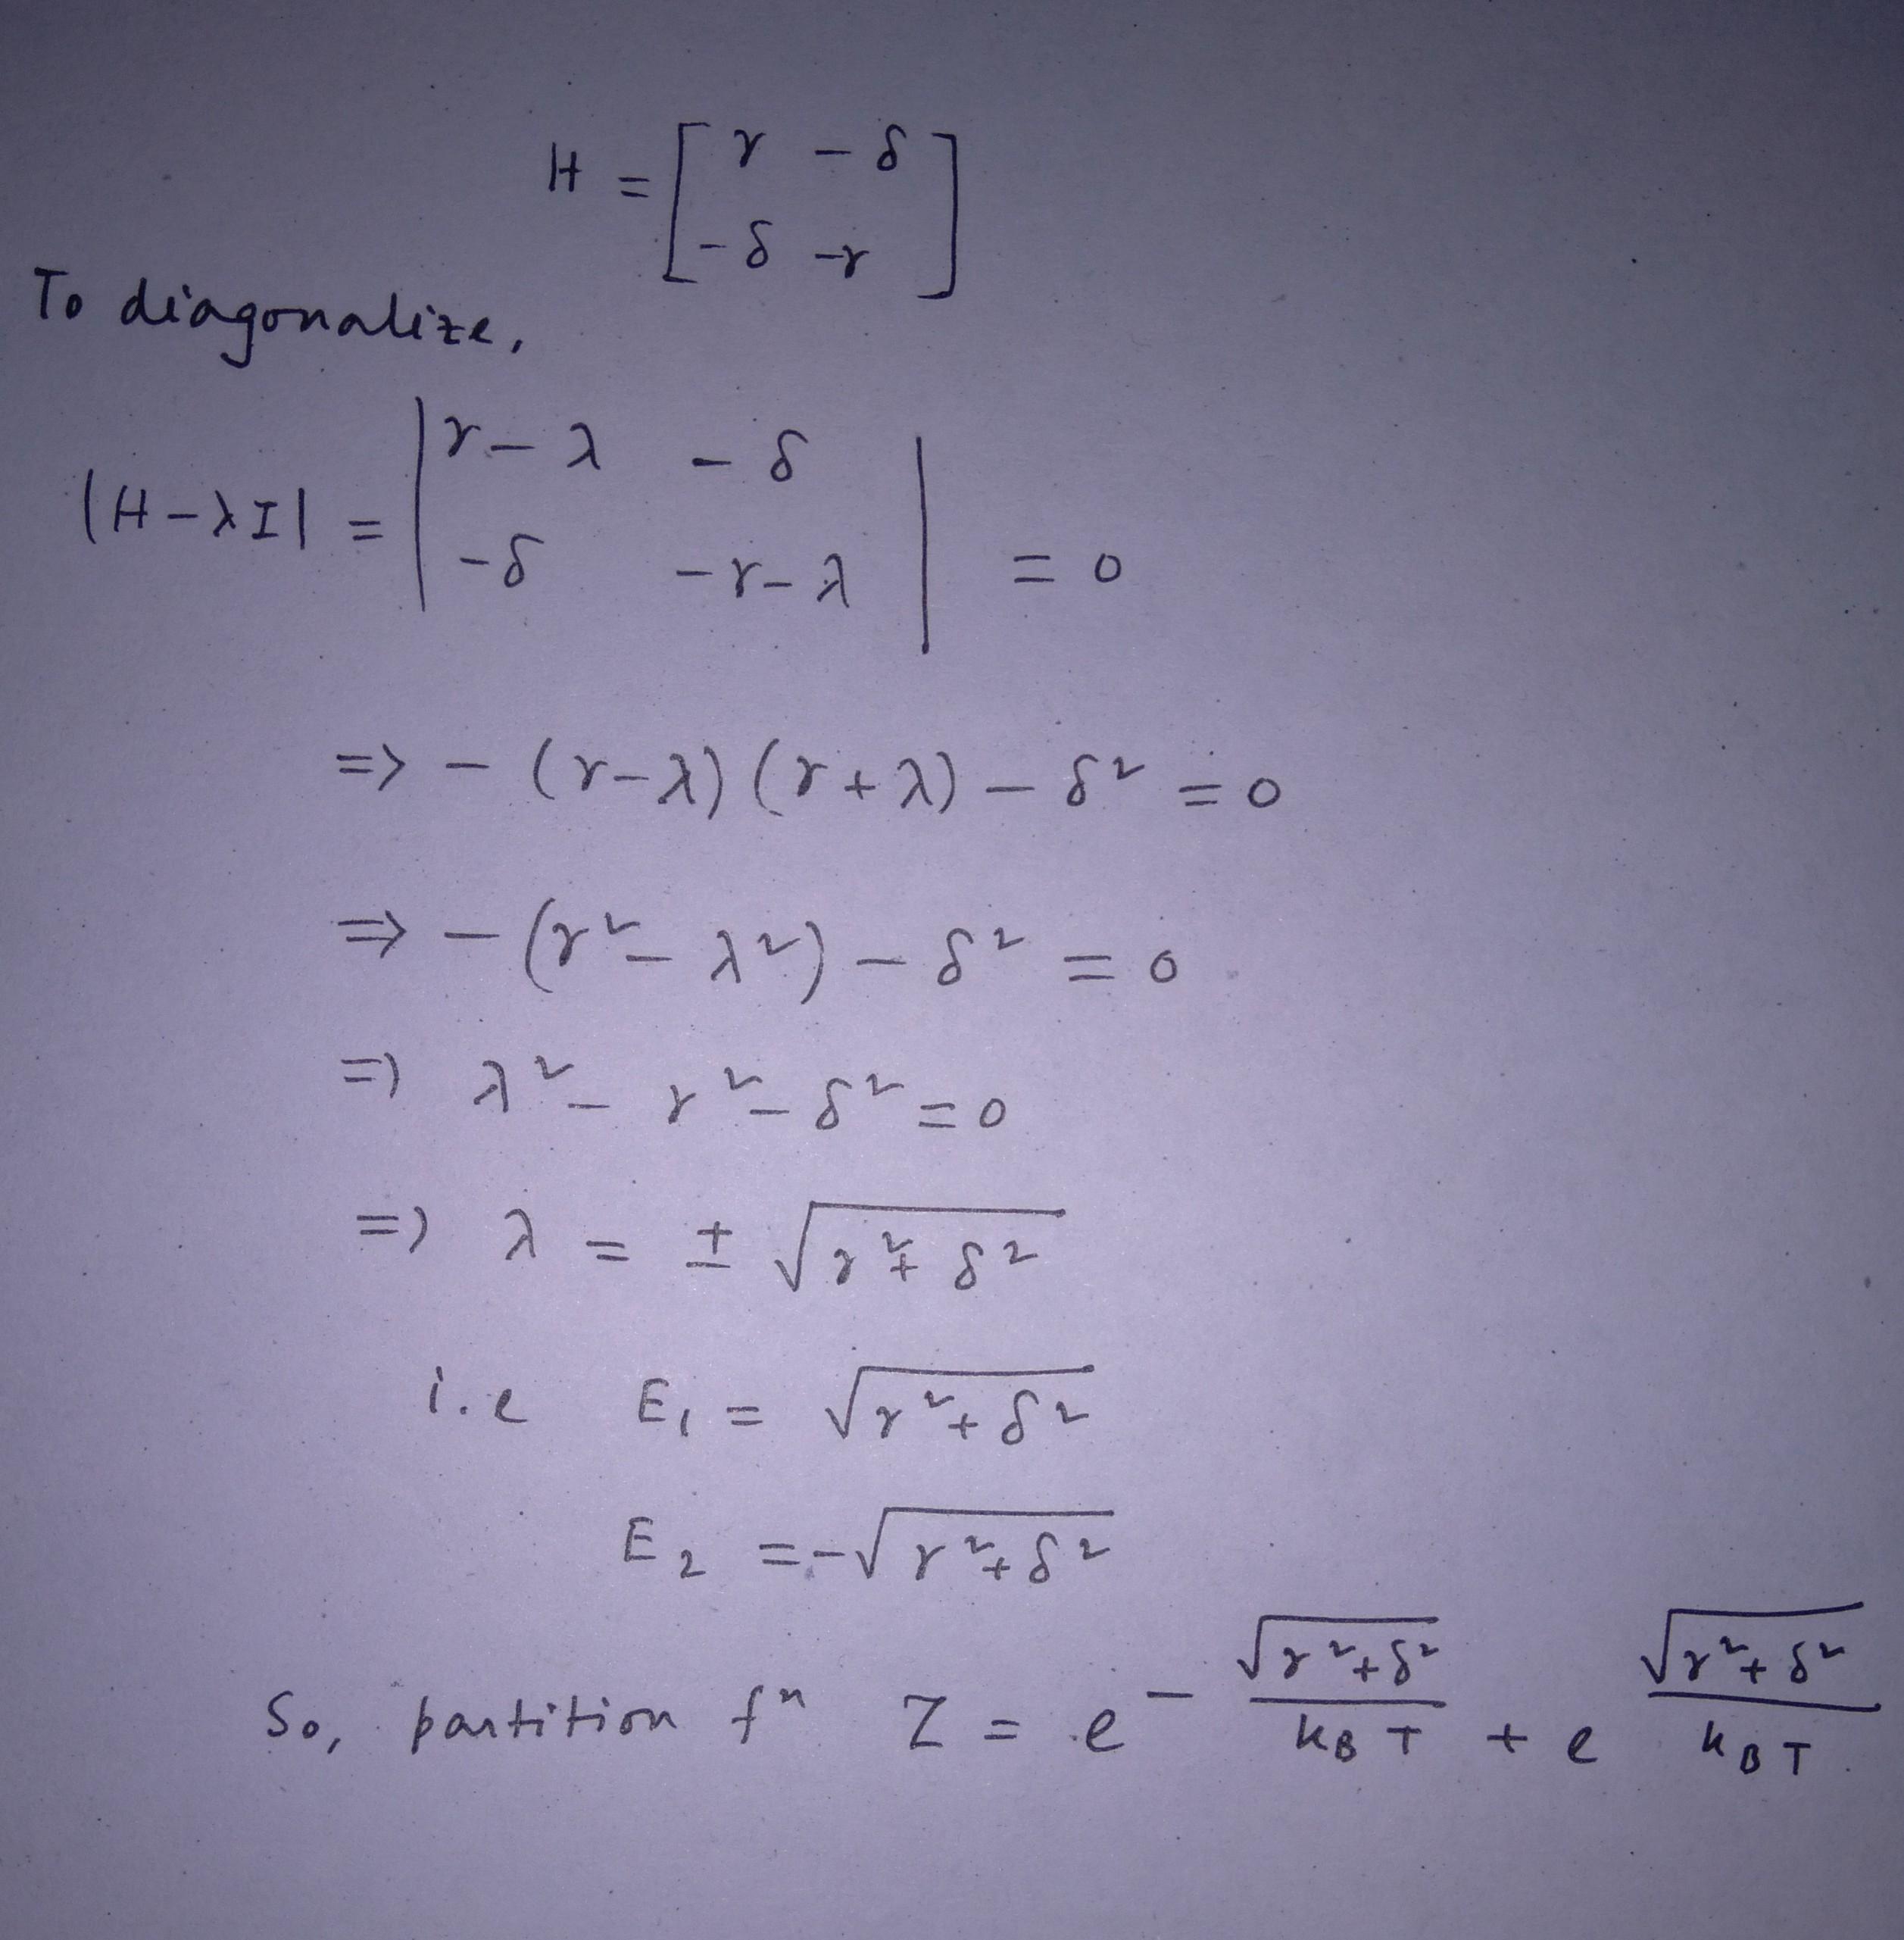 H = [γ −δ
−δ −γ]
To diagonalize,
|H−λI| = |γ−λ −δ
−δ −γ−λ| = 0
=> −(γ−λ)(γ+λ) − δ² = 0
=> −(γ²−λ²) − δ² = 0
=> λ² − γ² − δ² = 0
=> λ = ± √(γ²+δ²)
i.e E₁ = √(γ²+δ²)
E₂ = −√(γ²+δ²)
So, partition fⁿ Z = e^(−√(γ²+δ²)/(k_B T)) + e^(√(γ²+δ²)/(k_B T)).